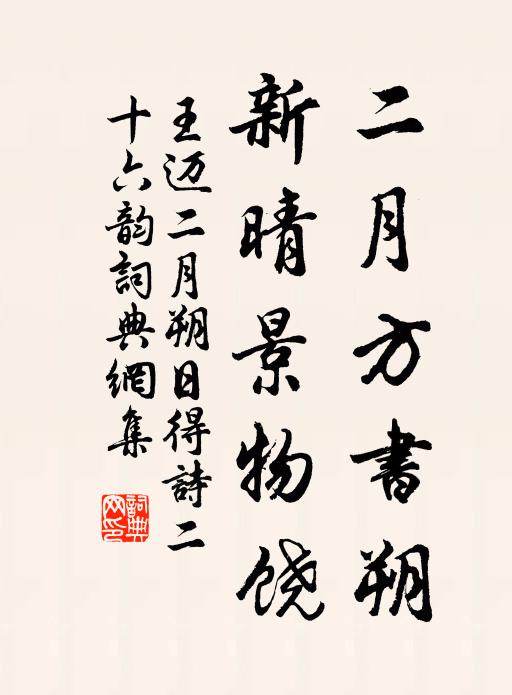 二月方書朔
新晴景物饶
王迈二月朔日得詩二
十六韵詞典網集
詞典
网印